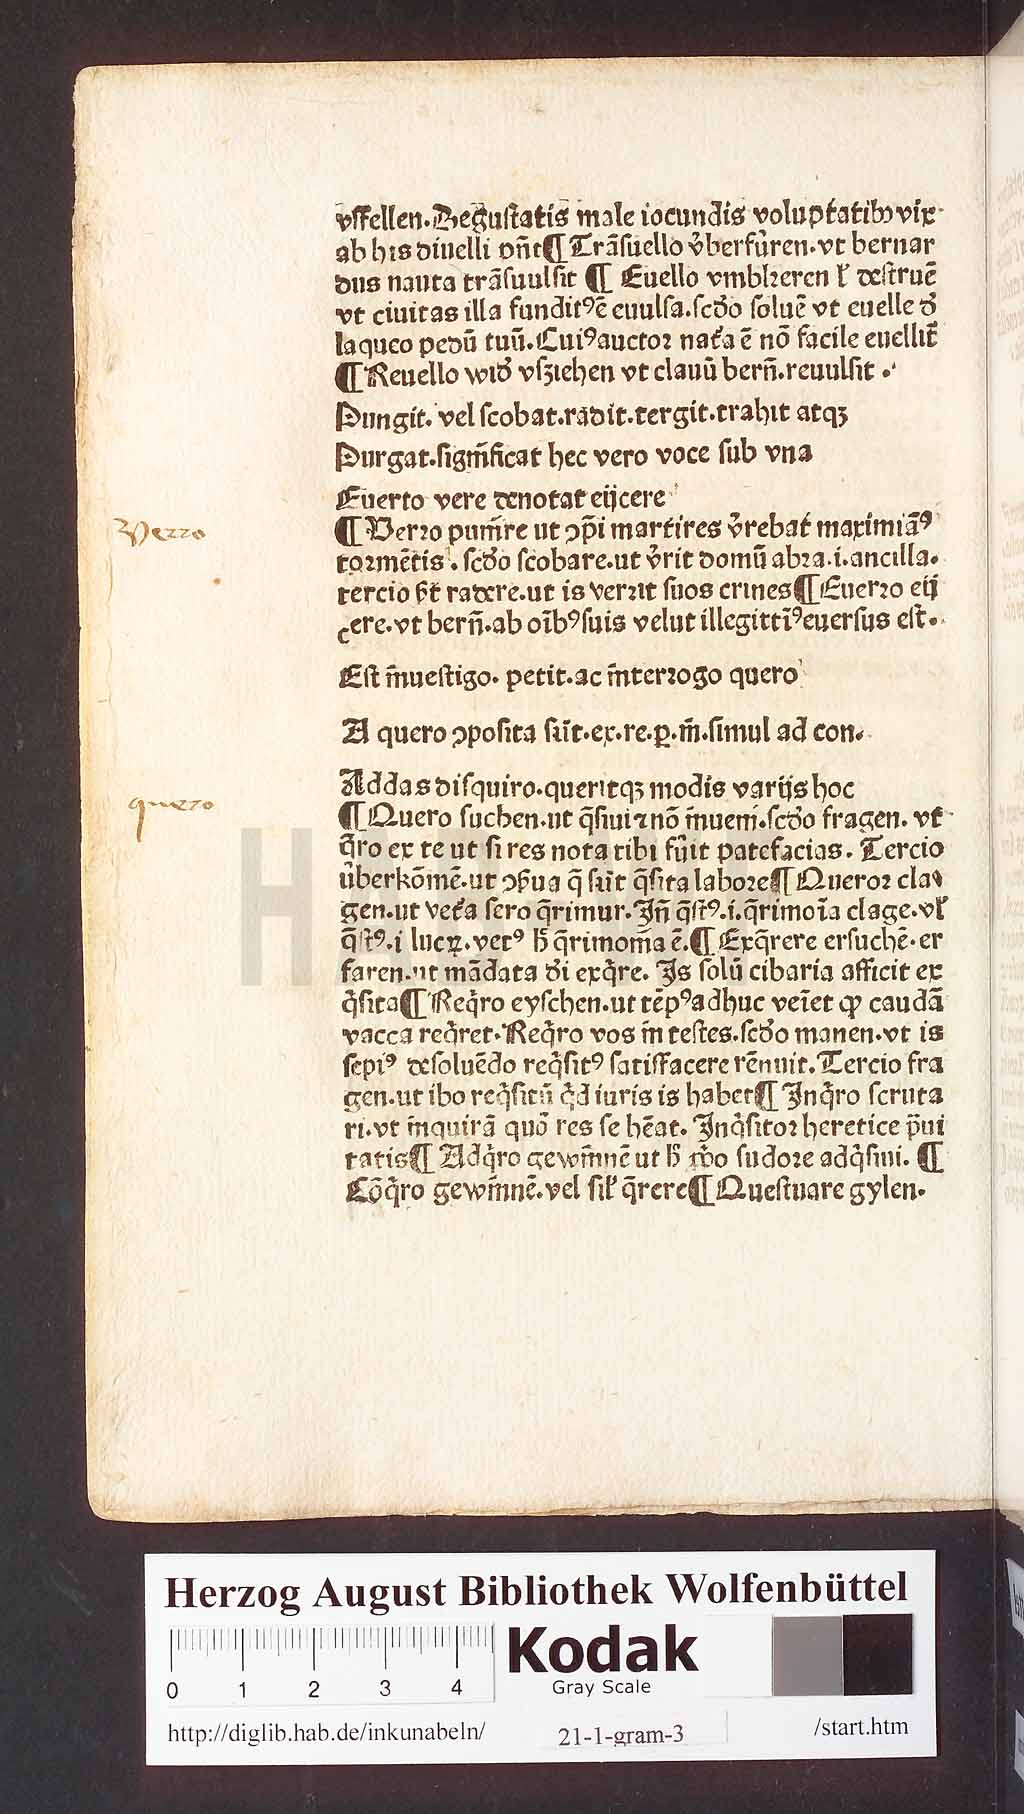 vffellen. Degustatis male iocundis voluptatibꝫ vix
ab his diuelli pn̄t ¶ Trāsuello v̉berfuͤren. vt bernar
dus nauta trāsuulsit ¶ Euello vmbkeren ł destruē
vt ciuitas illa funditꝰ ē euulsa. scďo soluē vt euelle ď
laqueo pedū tuū. Cuiꝰ auctor nat̉a ē nō facile euellit̄
¶ Reuello wiď vßziehen vt clauū bern̄. reuulsit.
Pungit. vel scobat. radit. tergit. trahit atqꝫ
Purgat. significat hec vero voce sub vna
Euerto vere denotat eijcere
Verro
¶ Verro punire ut ↄp̄i martires v̉rebat maximiāꝰ
tormētis. scďo scobare. ut v̉rit domū abra. i. ancilla.
tercio ƥt radere. ut is verrit suos crines ¶ Euerro eij
cere. vt bern̄. ab oībꝰ suis velut illegittīꝰ euersus est.
Est inuestigo. petit. ac interrogo quero
A quero ↄposita sūt. ex. re. ꝑ. in. simul ad con.
Addas disquiro. queritqꝫ modis varijs hoc
quero
¶ Quero suchen. ut q̄siui ⁊ nō inueni. scďo fragen. vt
q̄ro ex te ut si res nota tibi fu̓it patefacias. Tercio
u̓berkōmē. ut ↄƥua q̄ sūt q̄sita labore ¶ Queror cla
gen. ut vet̉a sero q̄rimur. Jn̄ q̄stꝰ. i. q̄rimoīa clage. vł
q̄stꝰ. i lucꝝ. vetꝰ ħ q̄rimonia ē. ¶ Exq̄rere ersuchē. er
faren. ut mādata ďi exq̉re. Js solū cibaria afficit ex
q̉sita ¶ Req̉ro eyschen. ut tēpꝰ adhuc veīet ꝙ caudā
vacca req̉ret. Req̉ro vos in testes. scďo manen. vt is
sepiꝰ desoluēdo req̉sitꝰ satisfacere rēnuit. Tercio fra
gen. ut ibo req̉sitū q̉d iuris is habet ¶ Jnq̉ro scruta
ri. vt inquirā quō res se hēat. Jnq̉sitor heretice p̄ui
tatis ¶ Adq̉ro gewinnē ut ħ sudore adq̉siui. ¶
Cōq̉ro gewinnē. vel sił q̄rere ¶ Questuare gylen.
HAB W
Herzog August Bibliothek Wolfenbüttel
0 1 2 3 4
Kodak
Gray Scale
http://diglib.hab.de/inkunabeln/ 21-1-gram-3 /start.htm